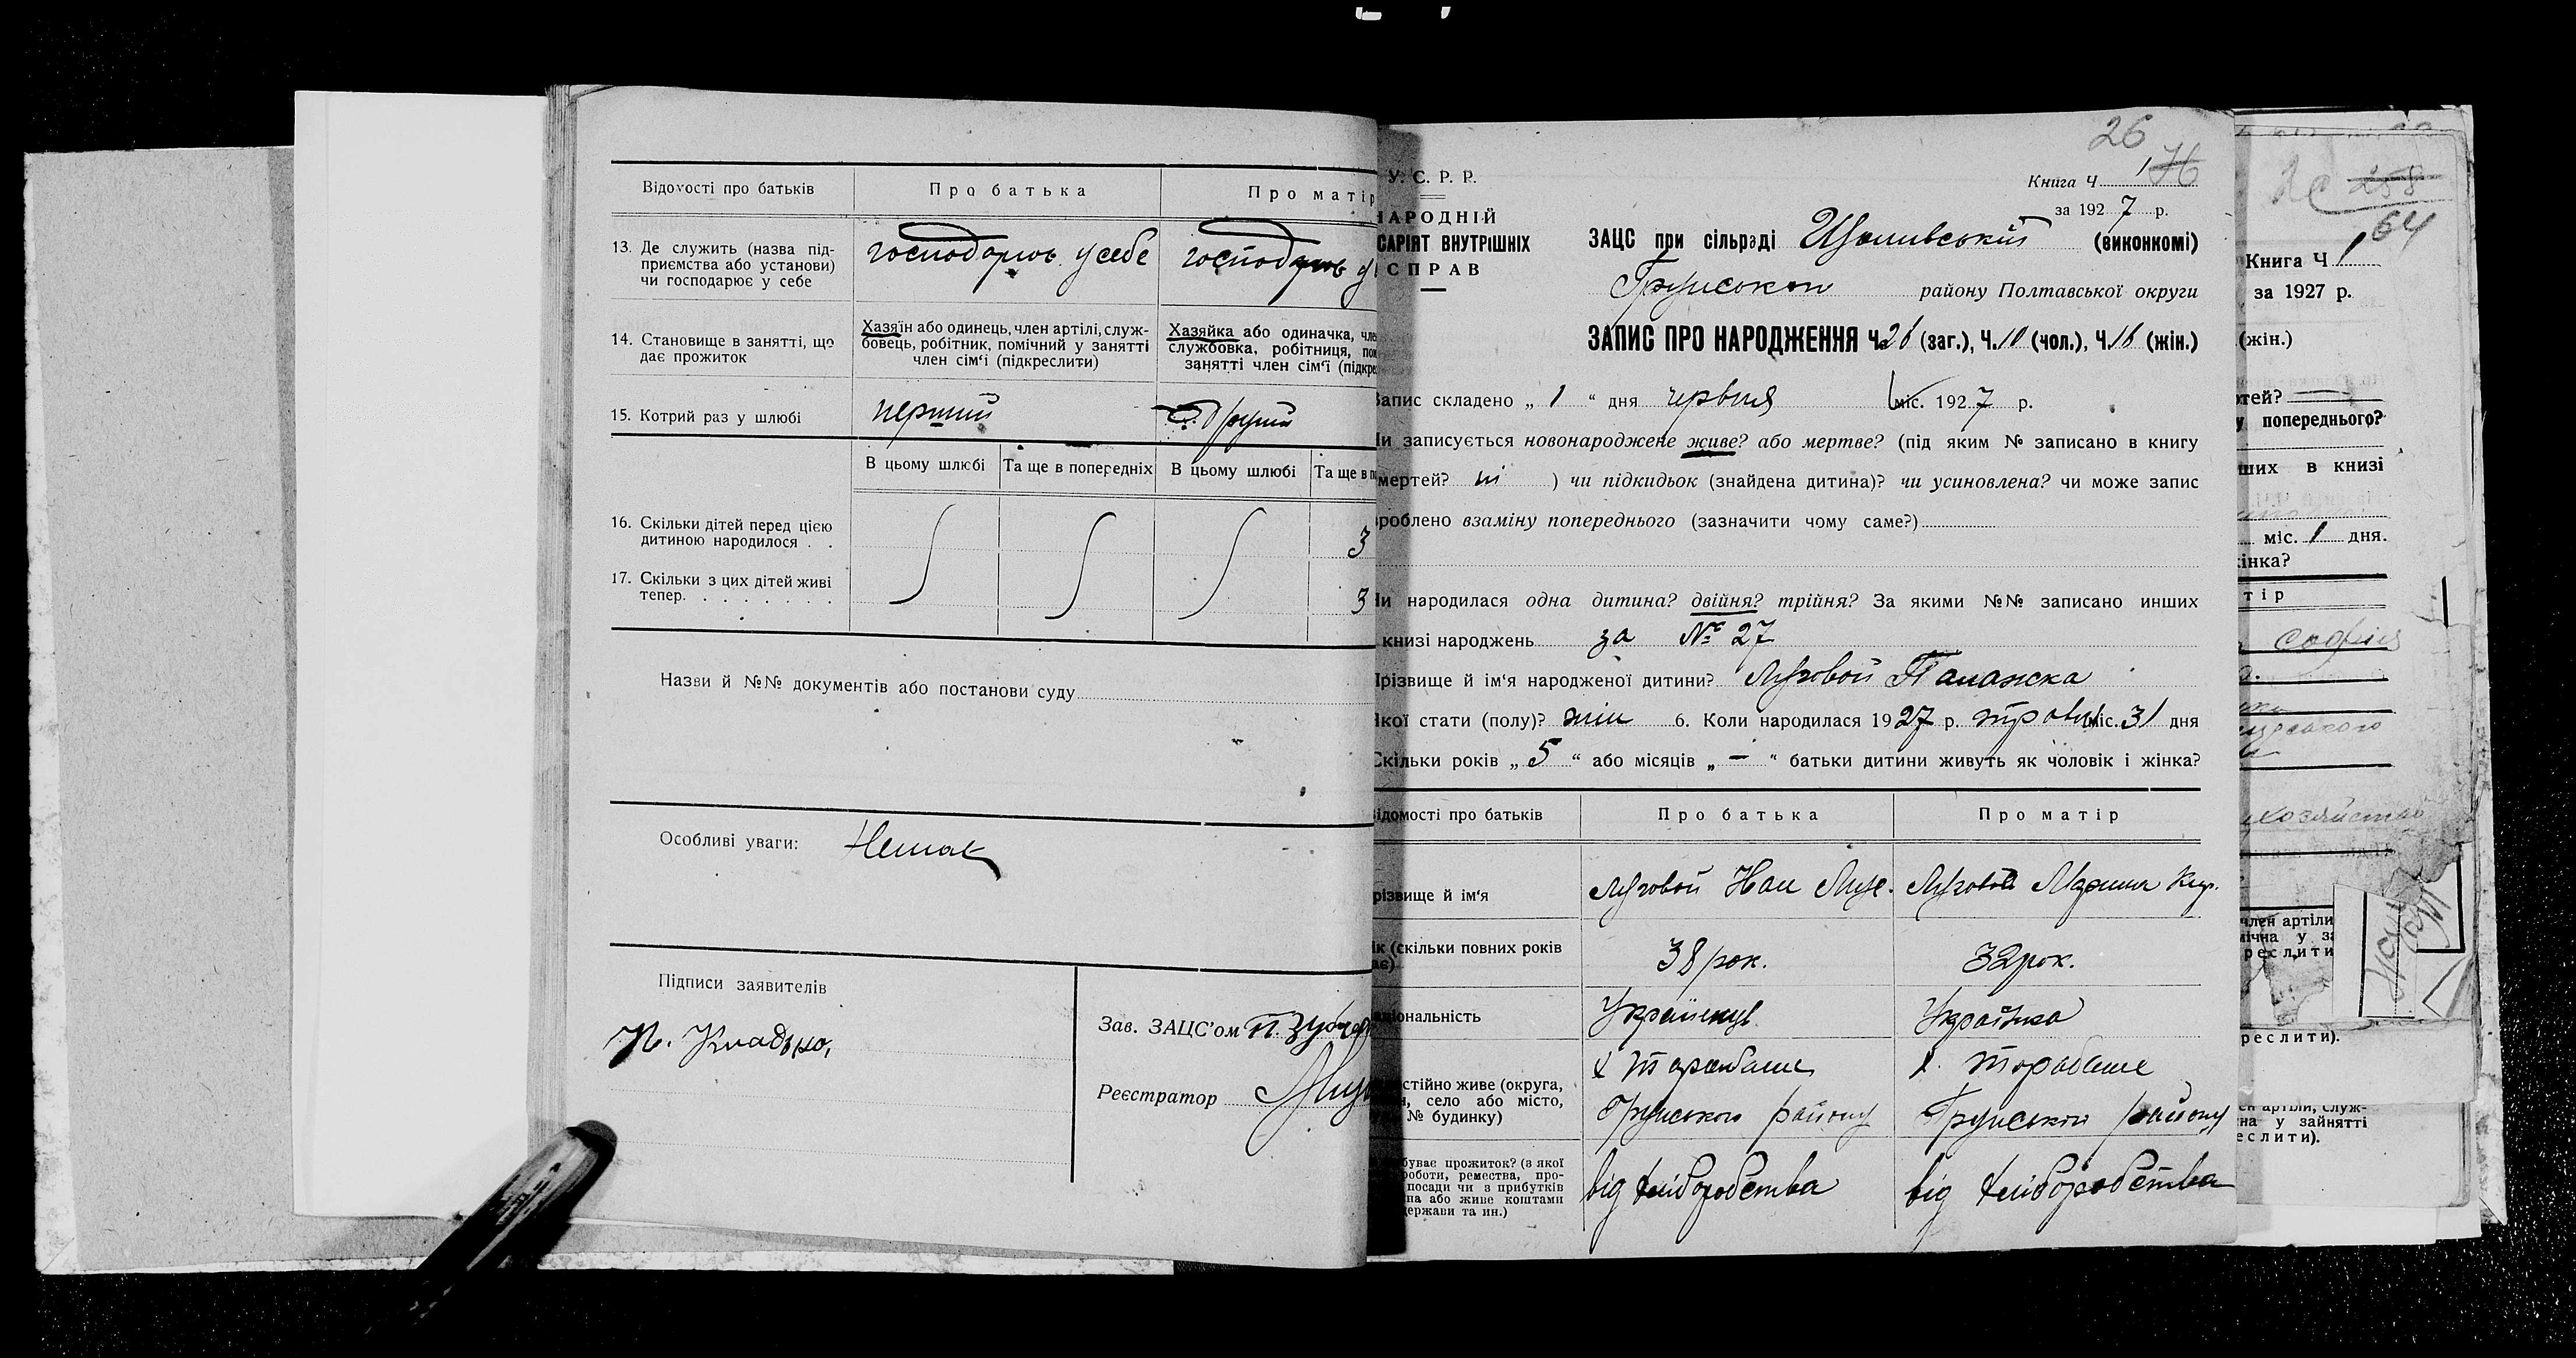 Відомості про батьків
Про батька
Про матір
13. Де служить (назва під-
приємства або установи)
чи господарює у себе
господарює у себе
господарює у
14. Становище в занятті, що
дає прожиток
Хазяїн або одинець, член артілі, служ-
бовець, робітник, помічний у занятті
член сім'ї (підкреслити)
Хазяйка або одиначка, чле
службовка, робітниця, пом
занятті член сім'ї (підкре
15. Котрий раз у шлюбі
перший
другий
В цьому шлюбі
Та ще в попередніх
В цьому шлюбі
Та ще в п
16. Скільки дітей перед цією
дитиною народилося . .
3
17. Скільки з цих дітей живі
тепер. . . . . . . .
3
Назви й №№ документів або постанови суду
Особливі уваги:
Немає
Підписи заявителів
Зав. ЗАЦС'ом П.
Реєстратор
26
У. С. Р. Р.
НАРОДНІЙ
САРІЯТ ВНУТРІШНІХ
СПРАВ
Книга Ч. 1
за 1927 р.
ЗАЦС при сільраді (виконкомі)
Грунського району Полтавської округи
ЗАПИС ПРО НАРОДЖЕННЯ Ч. 26 (заг.), Ч. 10 (чол.), Ч. 16 (жін.)
Запис складено „ 1 “ дня червня міс. 1927 р.
Чи записується новонароджене живе? або мертве? (під яким № записано в книгу
мертей? ні ) чи підкидьок (знайдена дитина)? чи усиновлена? чи може запис
зроблено взаміну попереднього (зазначити чому саме?)
Чи народилася одна дитина? двійня? трійня? За якими №№ записано инших
книзі народжень за № 27
Прізвище й ім'я народженої дитини? Луговой Палажка
Якої стати (полу)? жін 6. Коли народилася 1927 р. травня міс. 31 дня
Скільки років „ 5 “ або місяців „ – “ батьки дитини живуть як чоловік і жінка?
Відомості про батьків
Про батька
Про матір
різвище й ім'я
Луговой
Луговой
ік (скільки повних років
ає)
38 рок.
32 рок.
ціональність
Українець
Українка
стійно живе (округа,
н, село або місто,
№ будинку)
х
Грунського району
х.
Грунського району
буває прожиток? (з якої
роботи, ремества, про-
посади чи з прибутків
на або живе коштами
держави та ин.)
від хліборобства
від хліборобства
258
64
Книга Ч 1
за 1927 р.
(жін.)
тей?
у попереднього?
ших в книзі
міс. 1 дня.
інка?
тір
Софія
член артіли
мічна у за
реслити
реслити).
ен артіли, служ-
на у зайнятті
еслити).